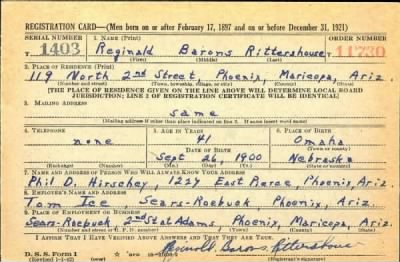 REGISTRATION CARD—(Men born on or after February 17, 1897 and on or before December 31, 1921)
SERIAL NUMBER 1. NAME (Print) ORDER NUMBER
T 1403 Reginald Barons Rittershouse 11730
(First) (Middle) (Last)
2. PLACE OF RESIDENCE (Print)
119 North 2nd Street, Phoenix, Maricopa, Ariz.
(Number and street) (Town, township, village, or city) (County) (State)
[THE PLACE OF RESIDENCE GIVEN ON THE LINE ABOVE WILL DETERMINE LOCAL BOARD
JURISDICTION; LINE 2 OF REGISTRATION CERTIFICATE WILL BE IDENTICAL]
3. MAILING ADDRESS
same
[Mailing address if other than place indicated on line 2. If same insert word same]
4. TELEPHONE 5. AGE IN YEARS 6. PLACE OF BIRTH
none 41 Omaha
DATE OF BIRTH (Town or county)
Sept 26, 1900 Nebraska
(Exchange) (Number) (Mo.) (Day) (Yr.) (State or country)
7. NAME AND ADDRESS OF PERSON WHO WILL ALWAYS KNOW YOUR ADDRESS
Phil D. Hirschey, 1224 East Pierce, Phoenix, Ariz.
8. EMPLOYER'S NAME AND ADDRESS
Tom Ice Sears-Roebuck, Phoenix, Ariz.
9. PLACE OF EMPLOYMENT OR BUSINESS
Sears-Roebuck 2nd St Adams, Phoenix, Maricopa, Ariz.
(Number and street or R. F. D. number) (Town) (County) (State)
I AFFIRM THAT I HAVE VERIFIED ABOVE ANSWERS AND THAT THEY ARE TRUE.
D. S. S. Form 1 Reginald Barons Rittershouse
(Revised 1-1-42) (over)